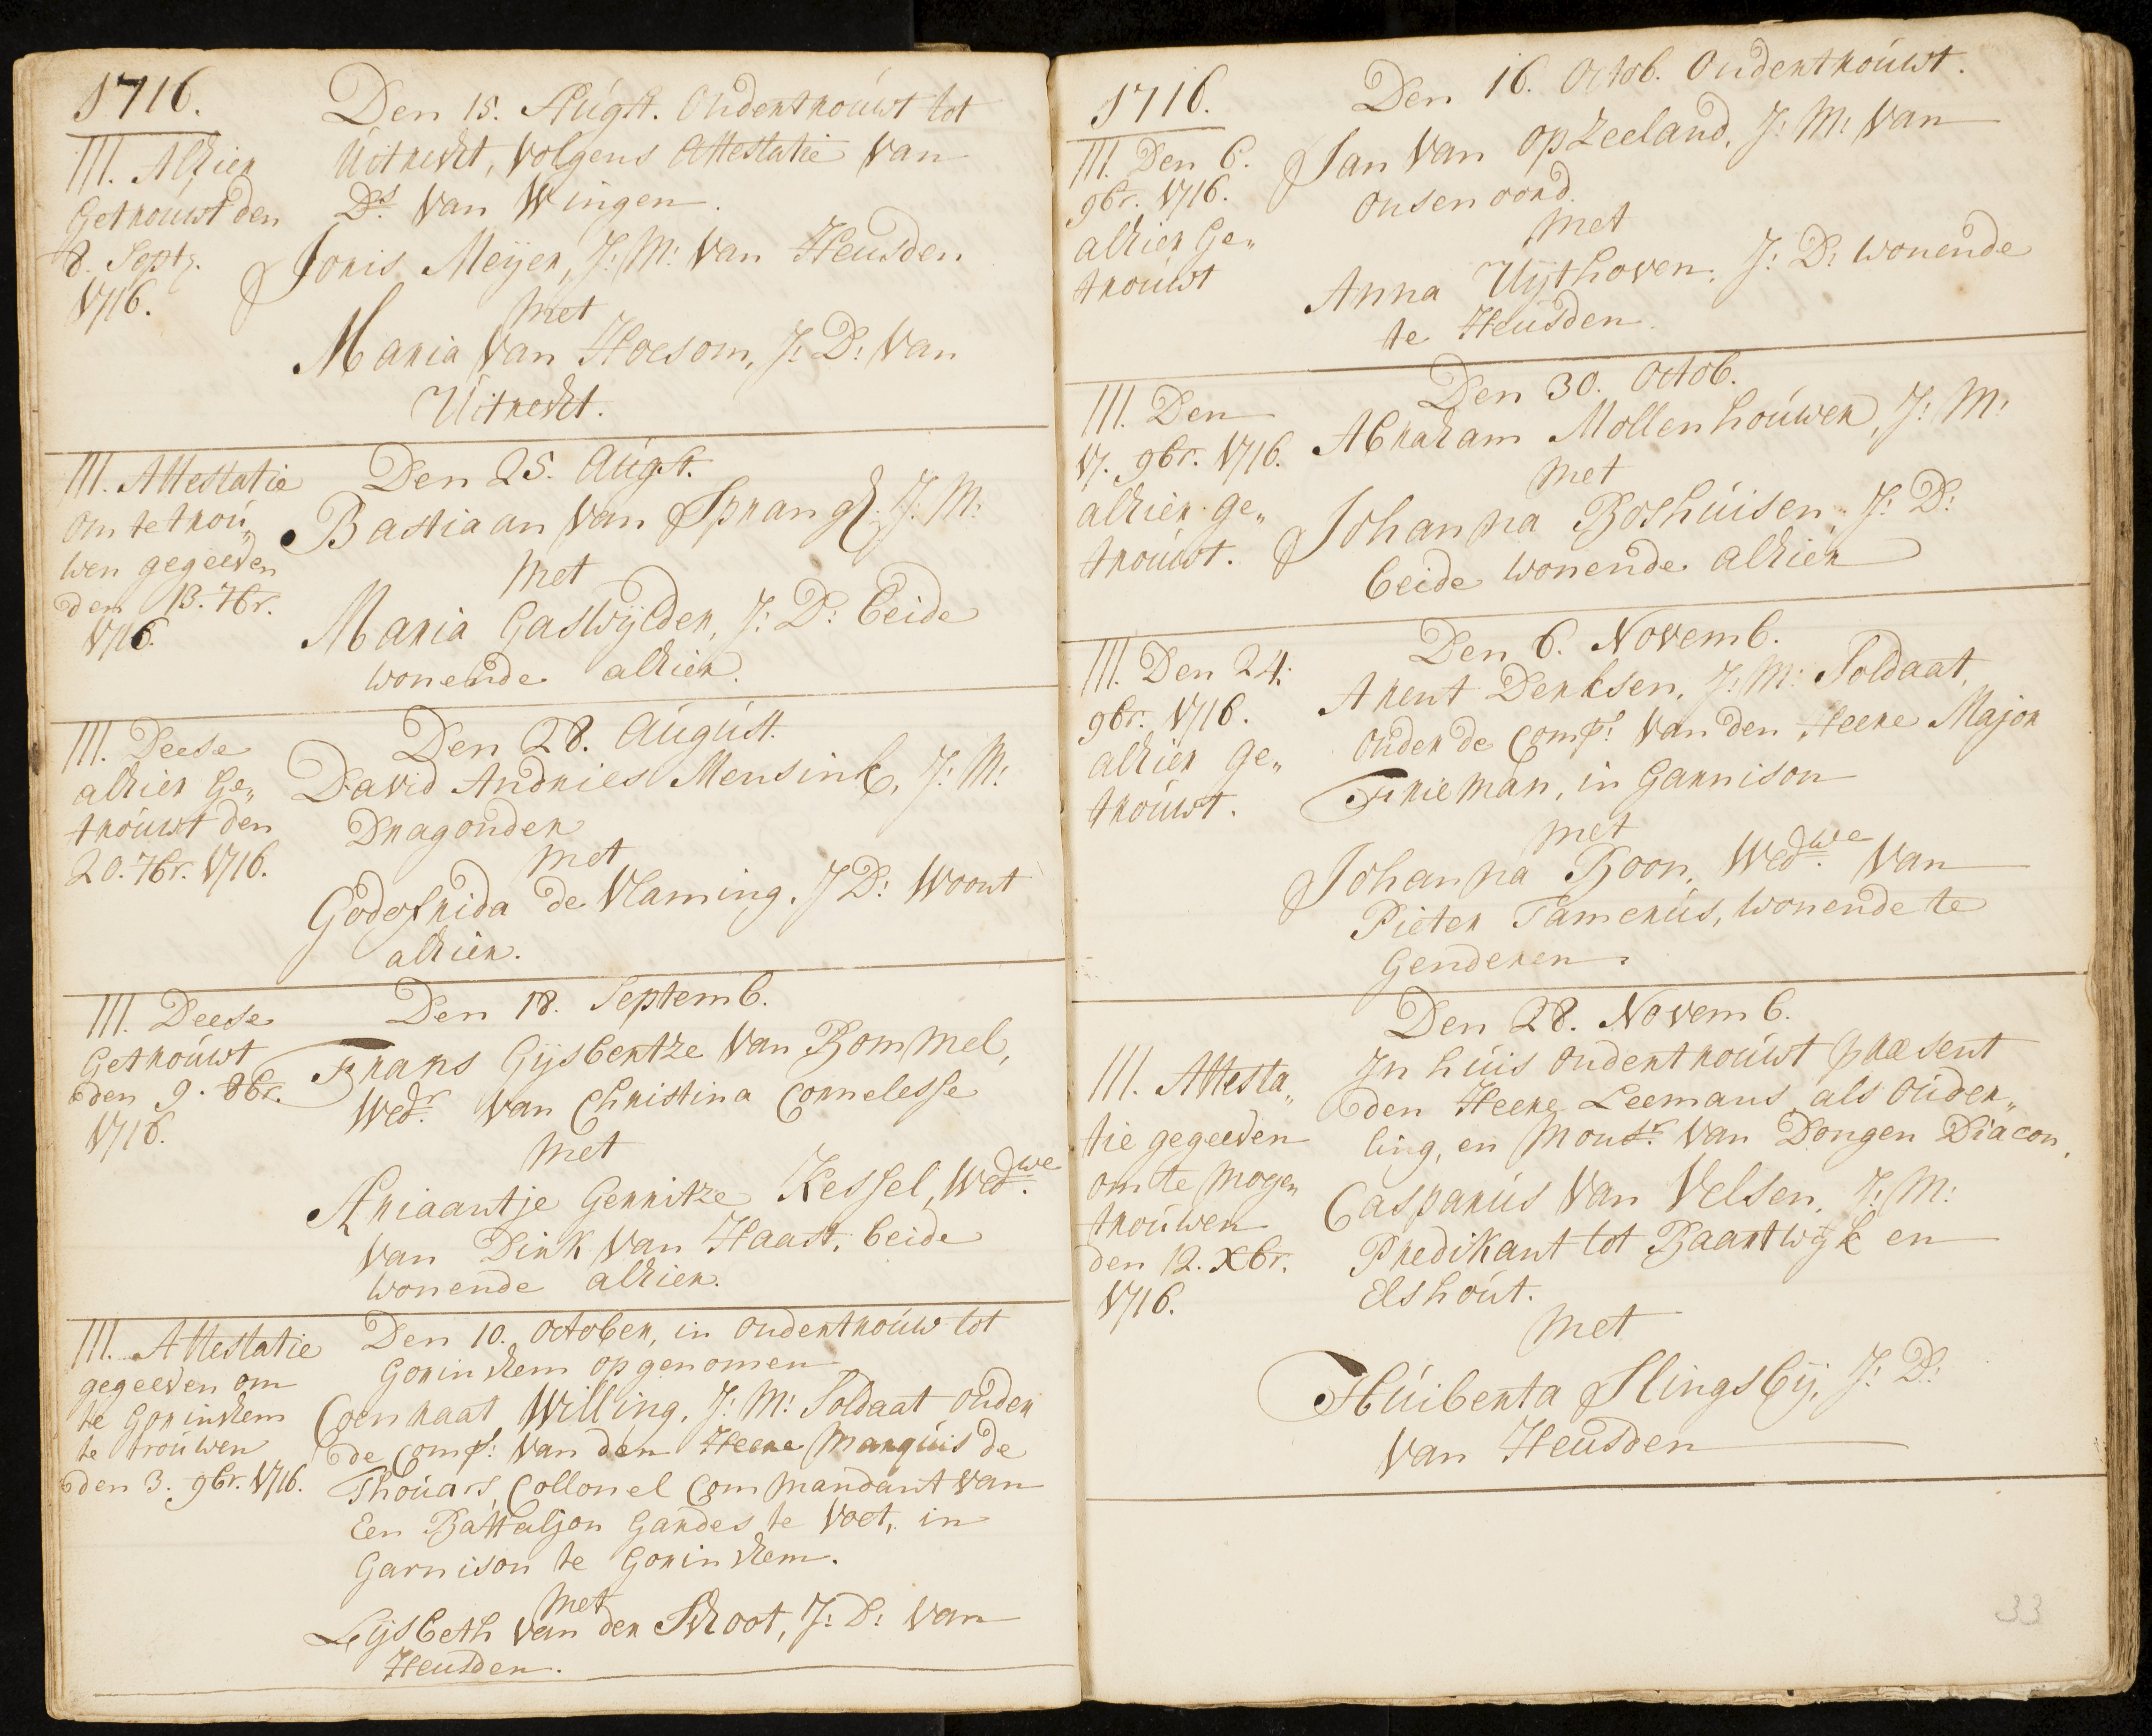 1716.
III. Alhier
Getrouwt den
8. Septr.
1716.
Den 15. Augst. Ondertrouwt tot
Uitrecht, volgens Attestatie van
Ds. van Wingen.
Joris Meijer, J: M: van Heusden
met
Maria van Hoesom, J: D: van
Uitrecht.
III. Attestatie
om te trou„
wen gegeeven
den 13. 7br.
1716.
Den 25. Augst.
Bastiaan van Sprangh. J: M:
met
Maria Gaswijlder, J: D: beide
wonende alhier.
III. Deese
alhier Ge„
trouwt den
20. 7br. 1716.
Den 28. August.
David Andries Mensink, J: M:
Dragonder
met
Godefrida de Vlaming. J D: Woont
alhier.
III. Deese
Getrouwt
den 9. 8br.
1716.
Den 18. Septemb.
Frans Gijsbertze van Bommel,
Wedr. van Christina Cornelesse
met
Ariaantje Gerritze Kessel, Wedwe.
van Dirk van Haast, beide
wonende alhier.
III. Attestatie
gegeeven om
te Gorinchem
te trouwen
den 3. 9br. 1716.
Den 10. October, in ondertrouw tot
Gorinchem opgenomen
Coenraat Willing. J: M: Soldaat onder
de Comp: van den Heere Marquis de
Thouars, Collonel Commandant van
Een Battaljon Gardes te Voet, in
Garnison te Gorinchem.
met
Lijsbeth van der Schoot, J: D: van
Heusden.
1716.
III. Den 6.
9br. 1716.
alhier Ge„
trouwt
Den 16. Octob. Ondertrouwt.
Jan van Opzeeland, J: M: van
Onsenoord.
met
Anna Uijthoven. J: D: wonende
te Heusden.
III. Den
17. 9br. 1716.
alhier ge„
trouwt.
Den 30. Octob.
Abraham Mollenhouwer, J: M:
met
Johanna Boshuisen, J: D:
beide wonende alhier
III. Den 24.
9br. 1716.
alhier ge„
trouwt.
Den 6. Novemb.
Arent Derksen, J: M: Soldaat,
onder de Comp: van den Heere Major
Frieman, in Garnison
met
Johanna Boon, Wedwe. van
Pieter Tamerus, wonende te
Genderen.
III. Attesta„
tie gegeeven
om te mogen
trouwen
den 12. Xbr.
1716.
Den 28. Novemb.
In huis ondertrouwt præsent
den Heere Leemans als Ouder„
ling, en Monsr. van Dongen Diacon,
Casparus van Velsen, J: M:
Predikant tot Baartwijk en
Elshout.
met
Huiberta Slingsbij, J: D:
van Heusden
33